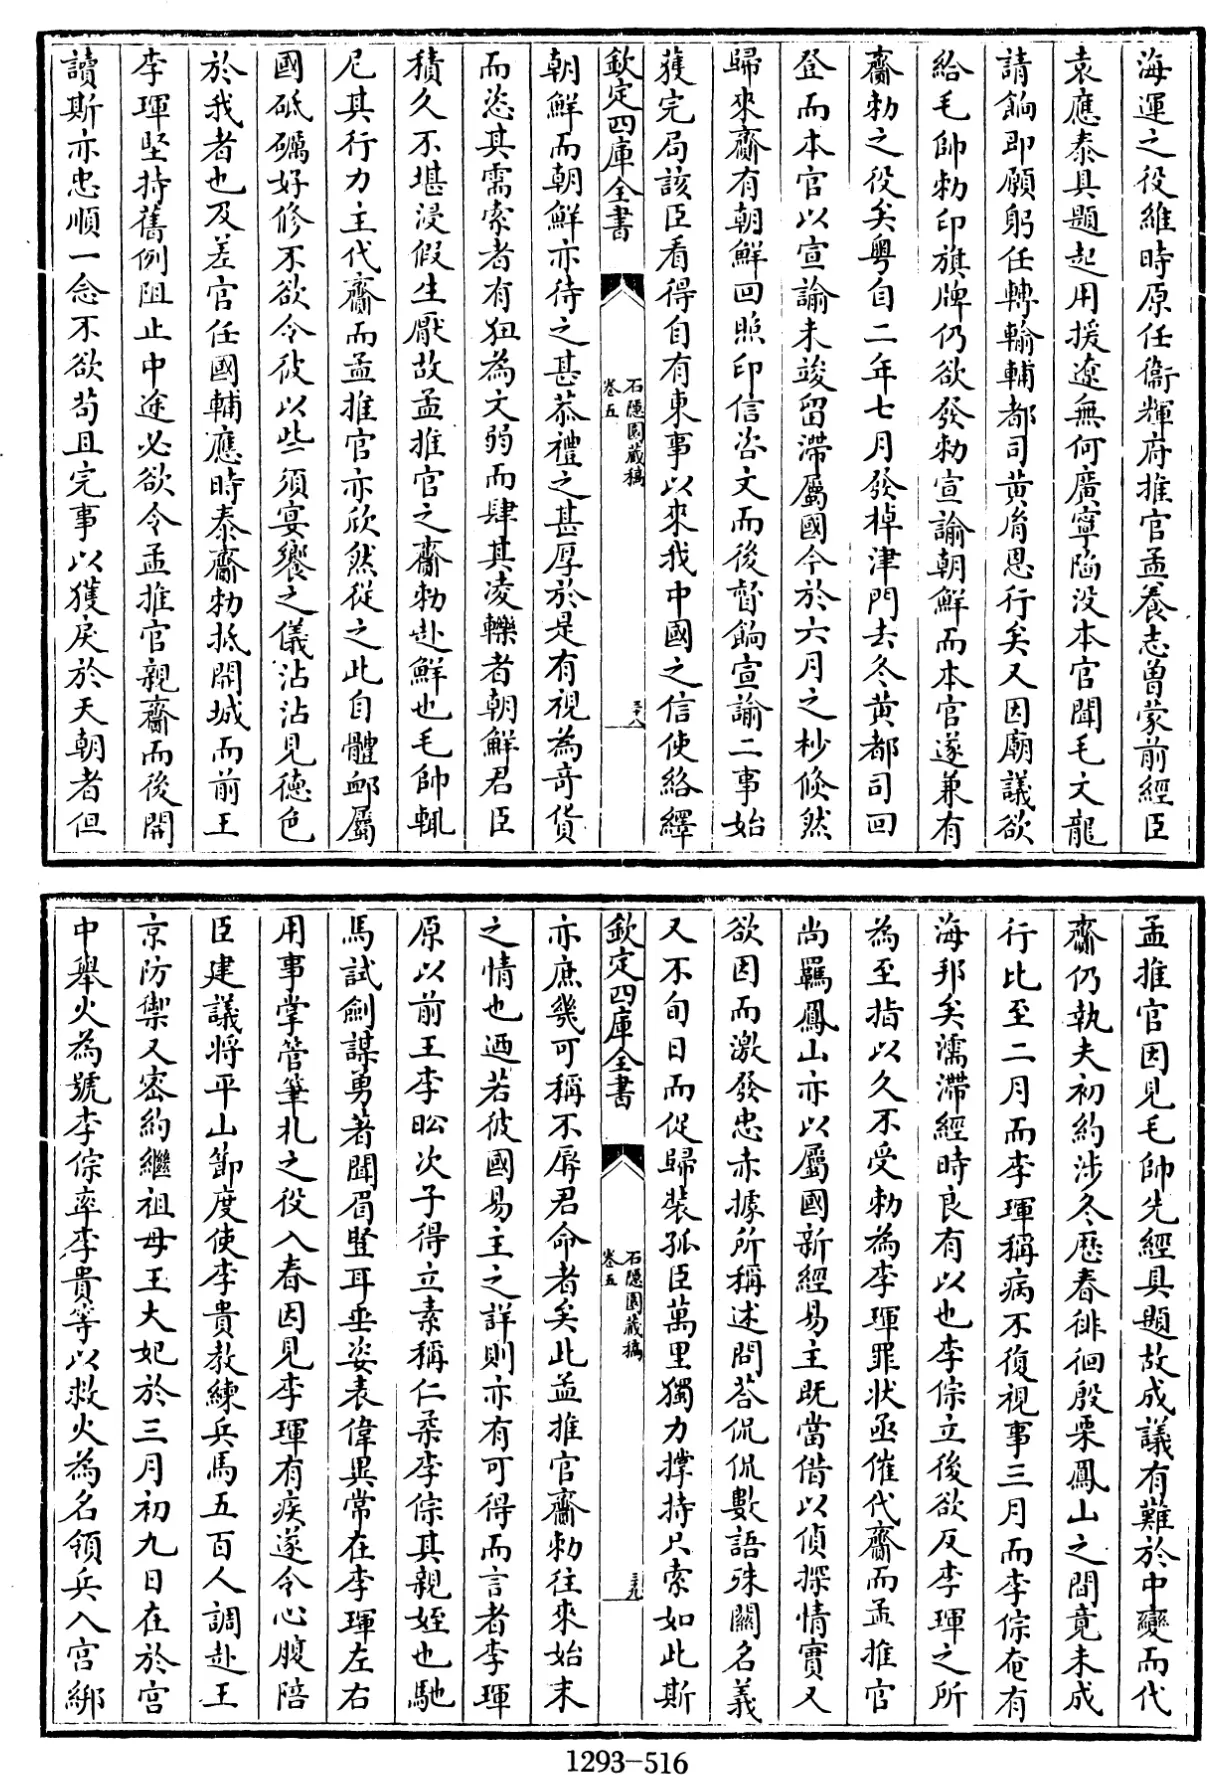 海運之役維時原任衛輝府推官孟養志曽蒙前經臣
袁應泰具題起用援遼無何廣寧陥没本官聞毛文龍
請餉即願躬任轉輸輔都司黄𦙍恩行矣又因廟議欲
給毛帥勅印旗牌仍欲發勅宣諭朝鮮而本官遂兼有
齎勅之役矣粤自二年七月發棹津門去冬黄都司回
登而本官以宣諭未竣留滯屬國今於六月之杪倐然
歸來齎有朝鮮回照印信咨文而後督餉宣諭二事始
獲完局該臣看得自有東事以來我中國之信使絡繹
欽定四庫全書
石隱園藏稿
卷五
三十八
朝鮮而朝鮮亦待之甚恭禮之甚厚於是有視為竒貨
而恣其需索者有狃為文弱而肆其凌轢者朝鮮君臣
積久不堪浸假生厭故孟推官之齎勅赴鮮也毛帥輒
尼其行力主代齎而孟推官亦欣然從之此自體邺屬
國砥礪好修不欲令彼以些須宴饗之儀沾沾見徳色
於我者也及差官任國輔應時泰齎勅抵開城而前王
李琿堅持舊例阻止中途必欲令孟推官親齎而後開
讀斯亦忠順一念不欲苟且完事以獲戾於天朝者但
孟推官因見毛帥先經具題故成議有難於中變而代
齎仍執夫初約涉冬歴春徘徊殷栗鳳山之間竟未成
行比至二月而李琿稱病不復視事三月而李倧奄有
海邦矣濡滯經時良有以也李倧立後欲反李琿之所
為至指以久不受勅為李琿罪状亟催代齎而孟推官
尚羈鳳山亦以屬國新經易主既當借以偵探情實又
欲因而激發忠赤據所稱述問荅侃侃數語殊關名義
又不旬日而促歸裝孤臣萬里獨力撑持只索如此斯
欽定四庫全書
石隱園藏稿
卷五
三十九
亦庶幾可稱不辱君命者矣此孟推官齎勅往來始末
之情也廼若彼國易主之詳則亦有可得而言者李琿
原以前王李昖次子得立素稱仁柔李倧其親姪也馳
馬試劍謀勇著聞眉豎耳垂姿表偉異常在李琿左右
用事掌管筆札之役入春因見李琿有疾遂令心腹陪
臣建議將平山節度使李貴教練兵馬五百人調赴王
京防禦又密約繼祖母王大妃於三月初九日在於宫
中舉火為號李倧率李貴等以救火為名領兵入宫綁
1293-516